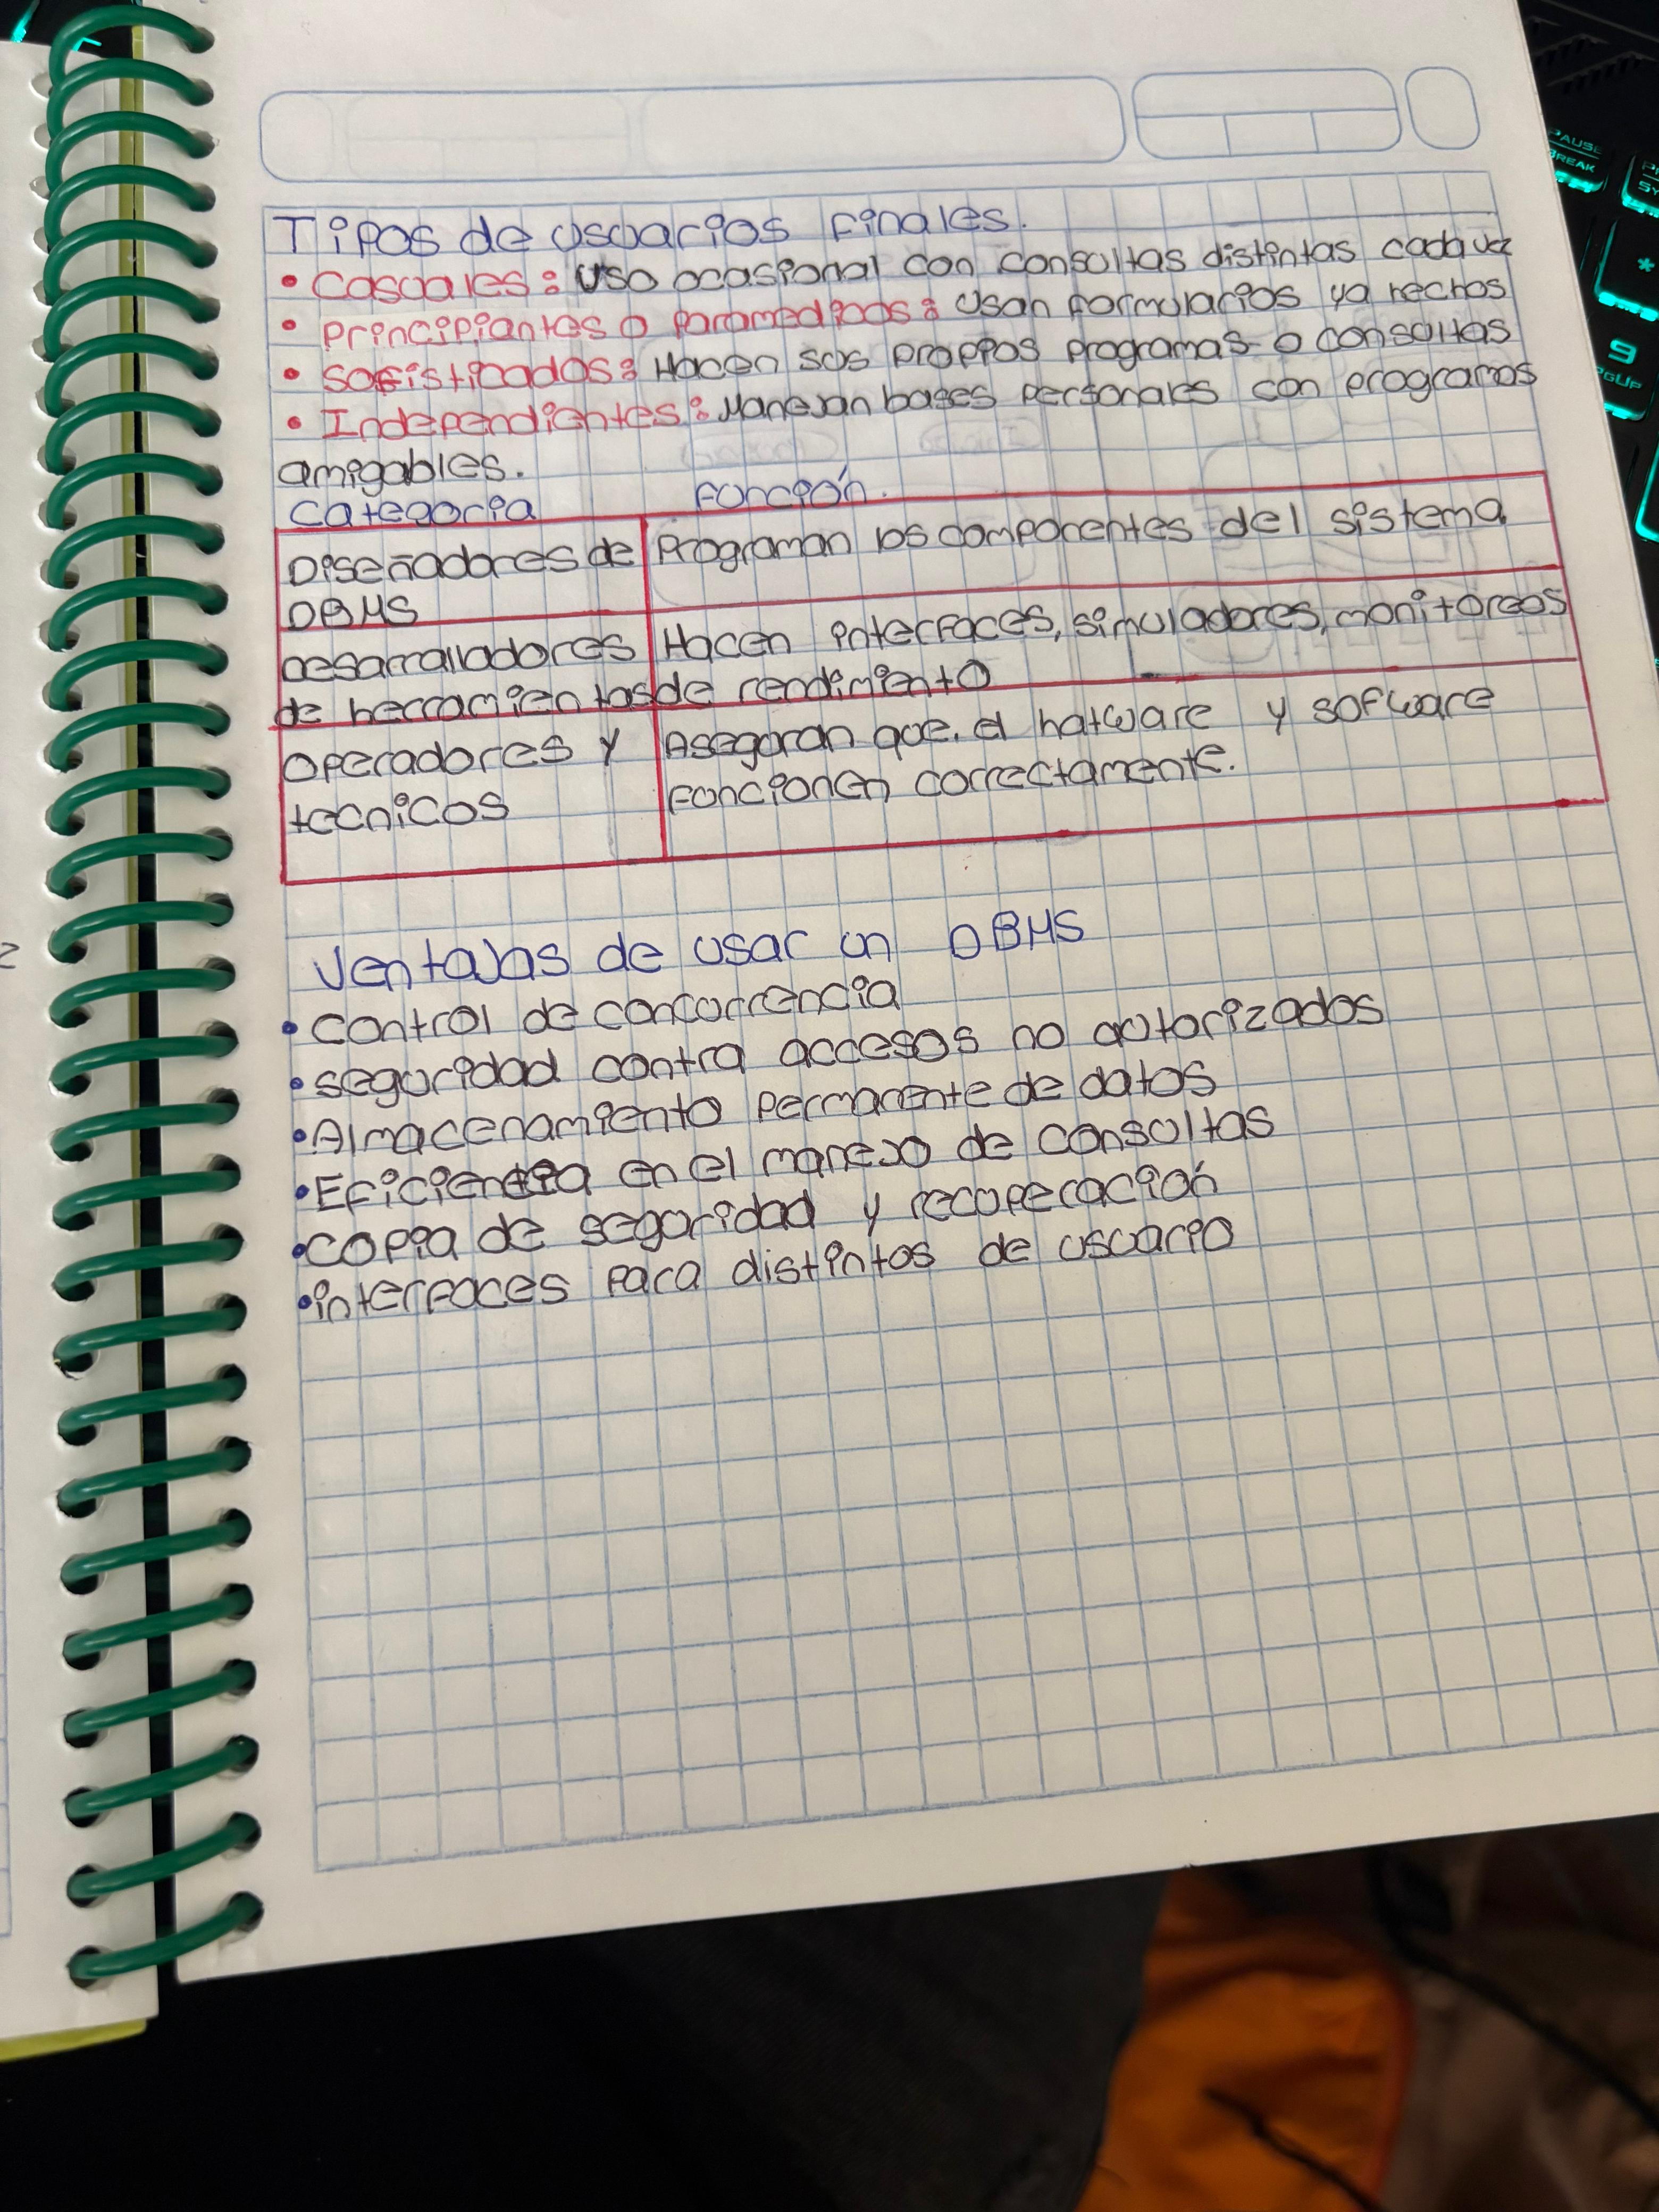 Tipos de usuarios finales.
• Casuales: Uso ocasional con consultas distintas cada vez
• principiantes o paramedicos: Usan formularios ya hechos
• Sofisticados: Hacen sus propios programas o consultas
• Independientes: Manejan bases personales con programas
amigables.
Categoria Función.
Diseñadores de Programan los componentes del sistema
DBMS
Desarralladores Hacen interfaces, simuladores, monitoreos
de herramientas de rendimiento
Operadores y Aseguran que el hatware y sofware
tecnicos funcionen correctamente.
Ventajas de usar un DBMS
• Control de concurrencia
• seguridad contra accesos no autorizados
• Almacenamiento permanente de datos
• Eficiencia en el manejo de consultas
• copia de seguridad y recuperación
• interfaces para distintos de usuario
PAUSE
BREAK
*
9
PGUP
2